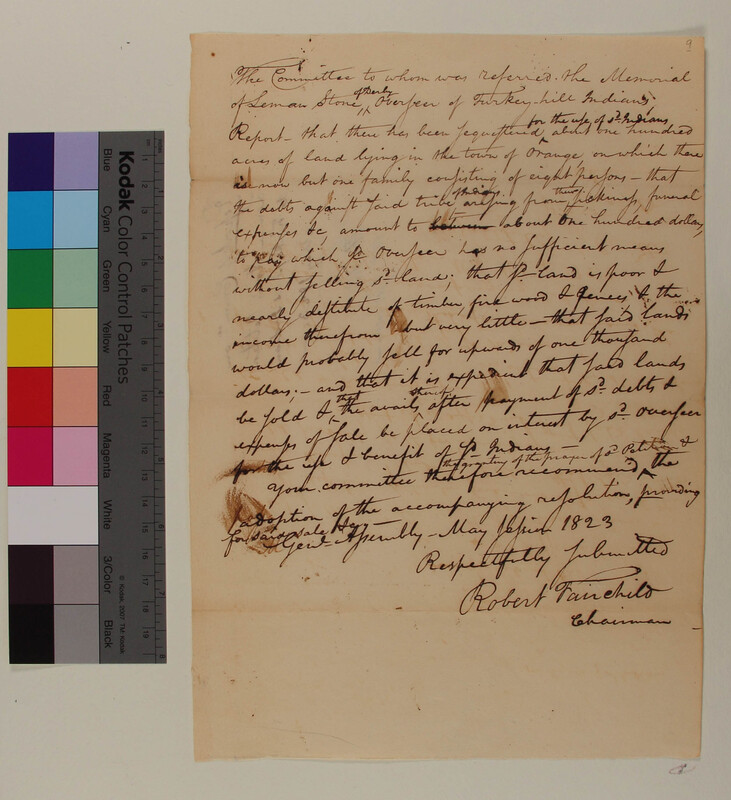 9
The Committee to whom was referred the Memorial
of Leman Stone, of Derby, Overseer of Turkey-hill Indians,
Report – that there has been sequestered, for the use of sd. Indians about one hundred
acres of land lying in the town of Orange, on which there
is now but one family consisting of eight persons – that
the debts against said tribe of Indians arising from their sickness, funeral
expenses &c, amount to between about one hundred dollars,
to pay which sd. Overseer has no sufficient means
without selling sd. land; that sd. land is poor &
nearly destitute of timber, fire wood & fences, & the
income therefrom but very little – that said lands
would probably sell for upwards of one thousand
dollars. – and that it is expedient that said lands
be sold & that the avails, after payment of sd. debts &
expenses of sale be placed on interest by sd. Overseer
for the use & benefit of sd. Indians –
Your committee therefore recommend the granting of the prayer of sd. Petition & the
adoption of the accompanying resolution, providing
for said sale, &c –
Genl. Assembly – May Session 1823
Respectfully Submitted
Robert Fairchild
Chairman
Kodak Color Control Patches
© Kodak, 2007 TM: Kodak
Blue
Cyan
Green
Yellow
Red
Magenta
White
3/Color
Black